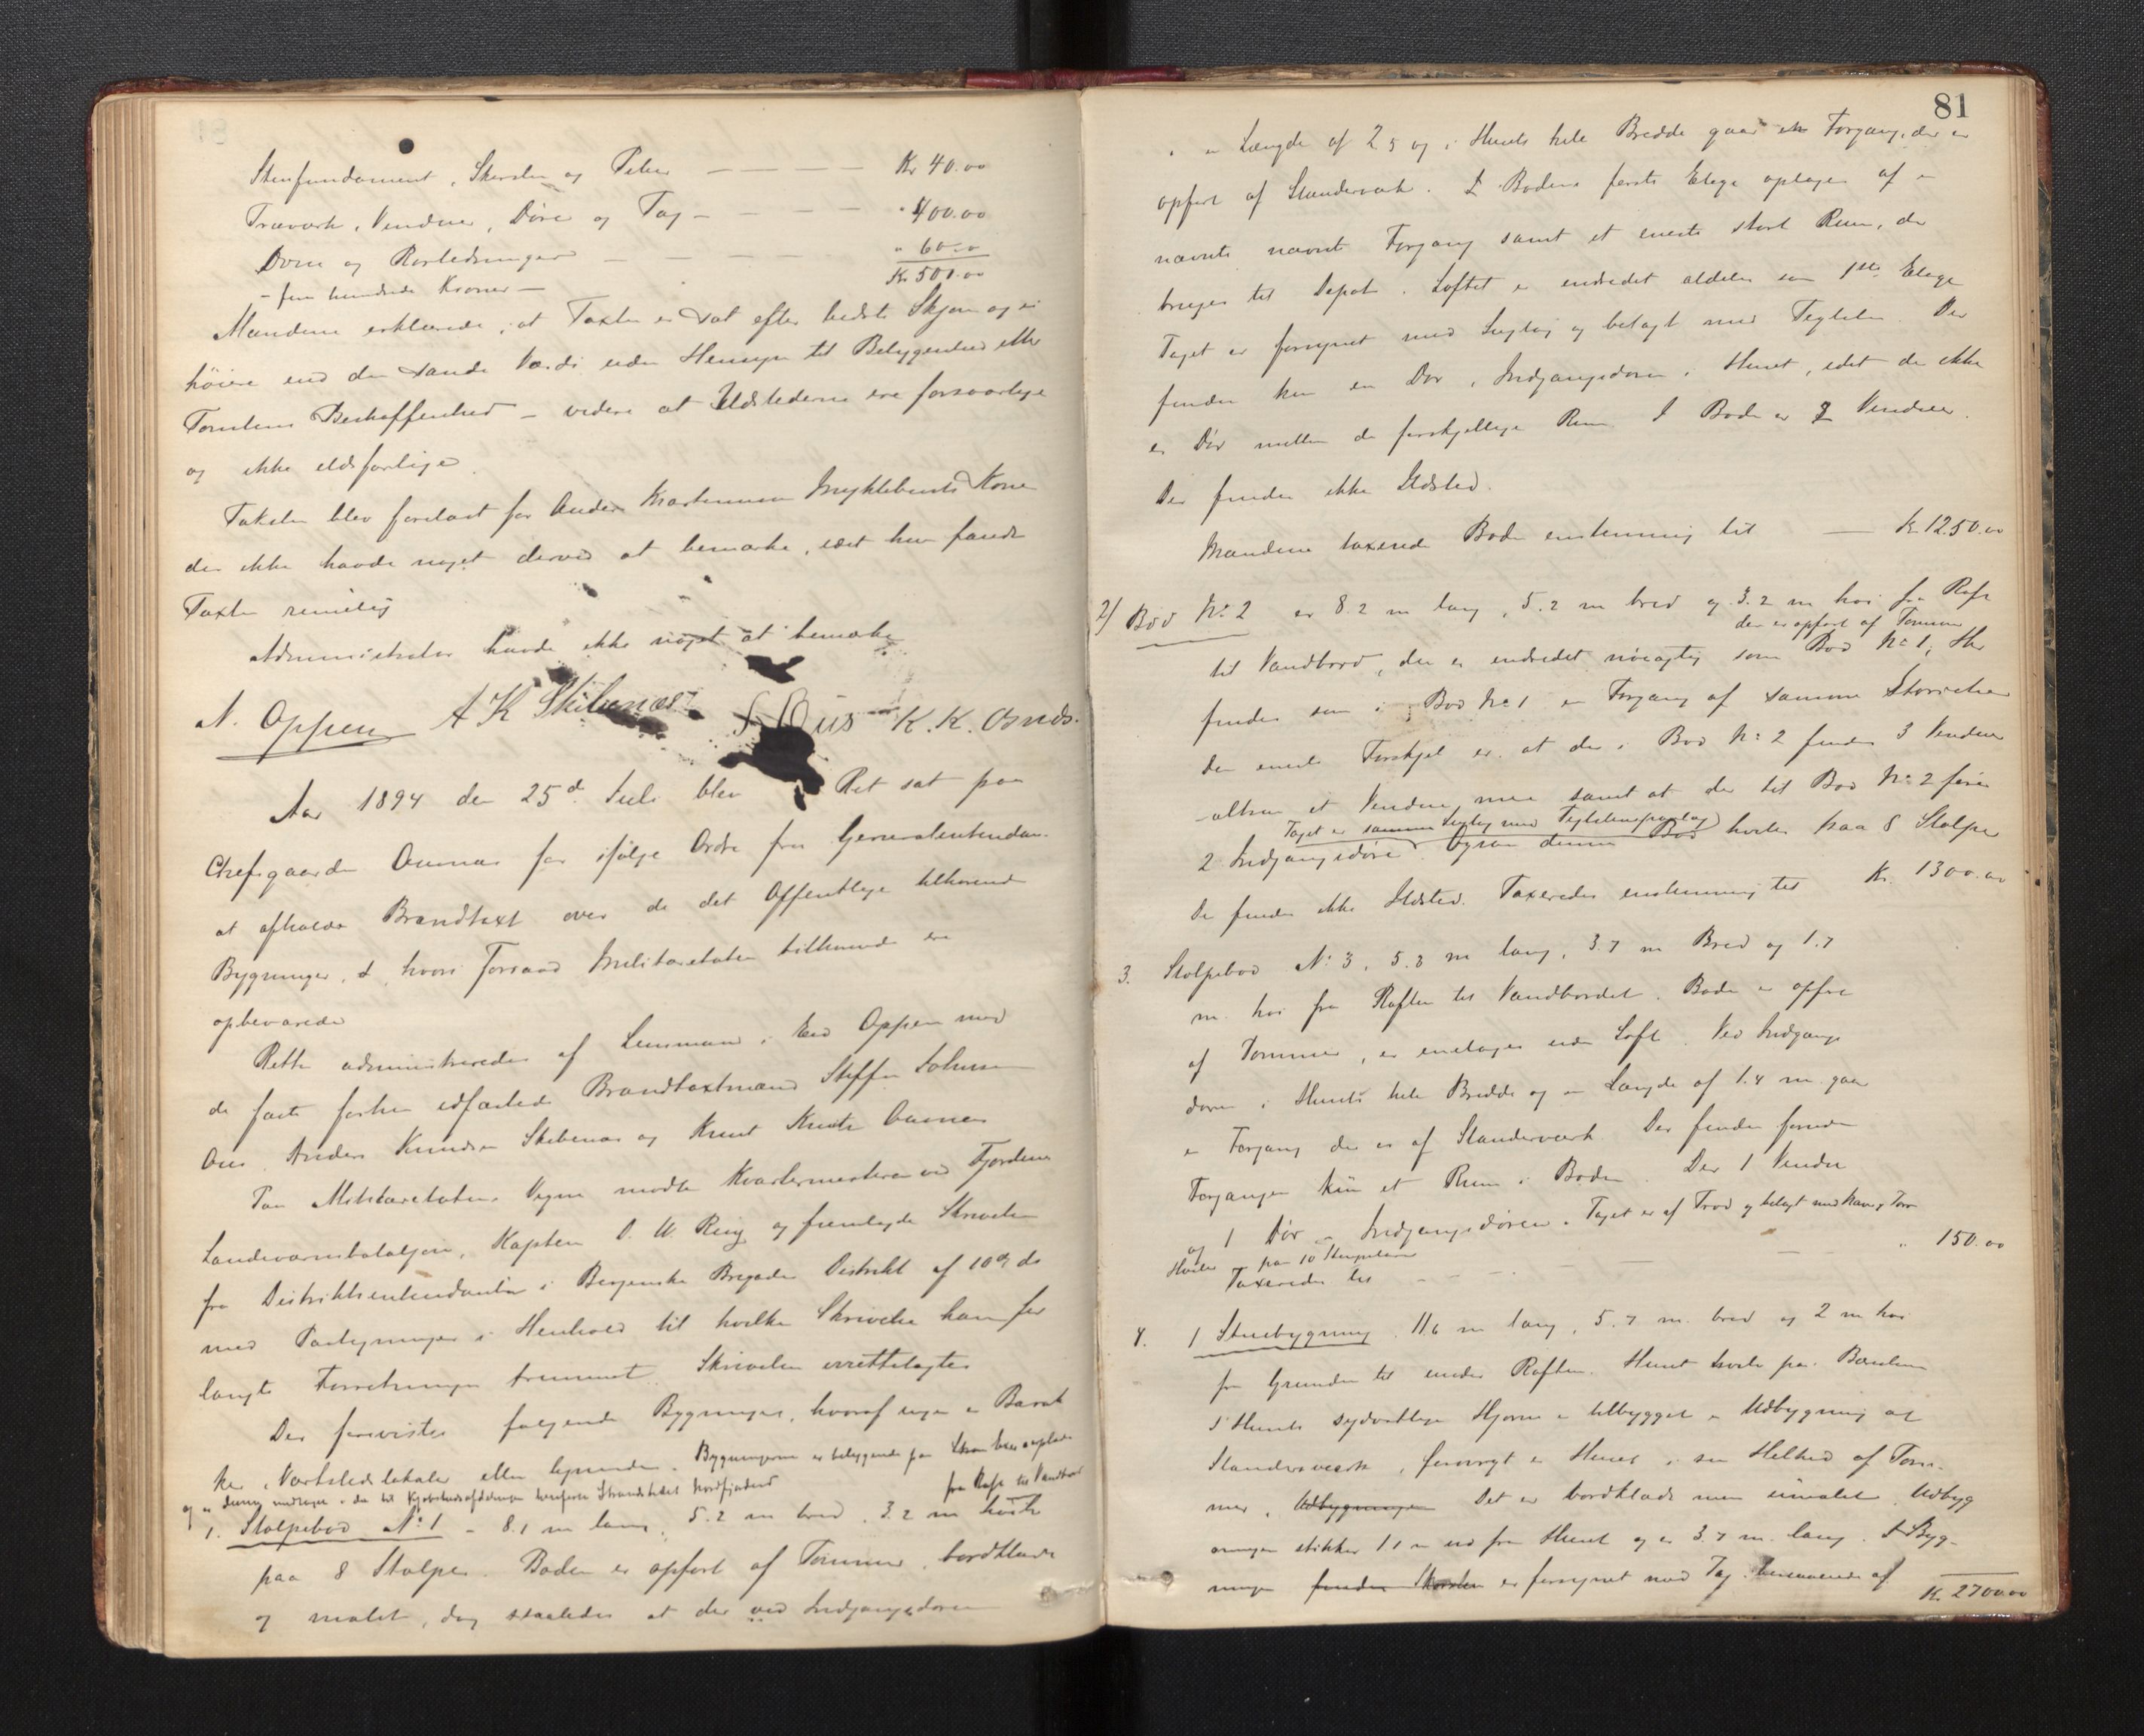 Stenfundament, Skorsten og Peher — — — — Kr 40.00
Træværk, Vinduer, Døre og Tag — — — — " 400.00
Ovne og Rørledninger — — — — " 60.00
Kr 500.00
- fem hundrede Kroner -
Mændene erklærede, at Taxten er sat efter bedste Skjøn og ei
høiere end den sande Værdi uden Hensyn til Bebyggenhed eller
Tomtens Beskaffenhed - videre at Ildstederne ere forsvarlige
og ikke ildsfarlige.
Taksten blev forelæst for Anders Martinussen Myklebusts Kone
der ikke havde noget derved at bemærke, idet hun fandt
Taxten rimelig
Administrator havde ikke noget at bemærke
N. Oppen A K Skibenæs S Aus K. K. Osnds.
Aar 1894 den 25de Juli blev Ret sat paa
Chefsgaarden for ifølge Ordre fra Generalintendan-
at afholde Brandtaxt over de det Offentlige tilhørende
Bygninger, i hvori Forraad Militæretaten tilhørende er
opbevarede
Retten administreredes af Lensmand i Eid Oppen med
de faste forhen edfæstede Brandtaxtmænd Steffen Johnsen
Aus, Anders Knudsen Skibenæs og Knut Knutsen
Paa Militæretatens Vegne mødte Kvartermesteren ved Fjordene
Landeværnsbataljon, Kaptein O. W. og fremlagde Skrivelse
fra Distriktsintendanten i Bergenske Brigades Distrikt af 10de ds
med Paategninger i Henhold til hvilken Skrivelse han for
langte Forretningen fremmet. Skrivelsen irettelagtes
Der forevistes følgende Bygninger, hvoraf ingen er Barak
ker, Værkstedslokaler eller lignende. Bygningerne er beliggende paa
og i den til Kjøbstadsafdelingen henførte Strandsted Nordfjordeid
fra Raft til Vandbord
1. Stolpebod No 1 - 8.1 m lang, 5.2 m bred, 3.2 m høi
paa 8 Stolper. Boden er opført af Tømmer, bordklædt
og malet, dog saaledes at der ved Indgangsdøren
81
i en Længde af 2.5 og i Husets hele Bredde gaar en Forgang, der er
opført af Standerværk. I Bodens første Etage optages af
nævnte nævnt Forgang samt et eneste stort Rum, der
bruges til Depot. Loftet er indredet aldeles som 1ste Etage
Taget er forsynet med Sugtag og belagt med Teglsten. Der
findes kun en Dør, Indgangsdøren i Huset, idet der ikke
er Dør mellem de forskjellige Rum. I Boden er 2 Vinduer.
Der findes ikke Ildsted.
Mændene taxerede Boden enstemmig til — Kr 1250.00
2) Bod No 2 er 8.2 m lang, 5.2 m bred og 3.2 m høi fra Raft
der er opført af Tømmer
til Vandbord, den er indredet nøiagtig som Bod No 1, Her
findes som i Bod No 1 en Forgang af samme Størrelse
den eneste Forskjel er at der i Bod No 2 findes 3 Vinduer
altsaa et Vindue mer samt at der til Bod No 2 fører
Taget er samme Sugtag med Teglstenspaalæg
2 Indgangsdøre. Ogsaa denne Bod hviler paa 8 Stolper
Der findes ikke Ildsted. Taxeredes enstemmig til Kr. 1300.00
3. Stolpebod No 3, 5.3 m lang, 3.7 m Bred og 1.7
m. høi fra Raften til Vandbordet. Boden er opført
af Tømmer, er enetages uden Loft. Ved Indgangs
døren i Husets hele Bredde og en Længde af 1.4 m. gaar
en Forgang der er af Standerværk. Der findes foruden
Forgangen kun et Rum i Boden. Der 1 Vindu
og 1 Dør - Indgangsdøren. Taget er af Trod og belagt med Næver og Torv
Hviler paa 10
Taxeredes til — — — — " 150.00
4. 1 Stuebygning, 11.6 m lang, 5.7 m. bred og 2 m høi
fra Grunden til under Raften. Huset hviler paa
I Husets sydvestlige Hjørne er tilbygget en Udbygning af
Standerværk, forøvrigt er Huset i sin Helhed af Tøm-
mer, Udbygningen Det er bordklædt men umalet. Udbyg
ningen stikker 1.1 m ud fra Huset og er 3.7 m. lang. I Byg-
ningen findes Skorsten er forsynet med Tag bestaaende af
Kr. 2700.00